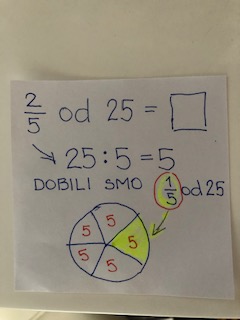 2/5 od 25 = □
25 : 5 = 5
DOBILI SMO 1/5 od 25
5 5
5
5 5